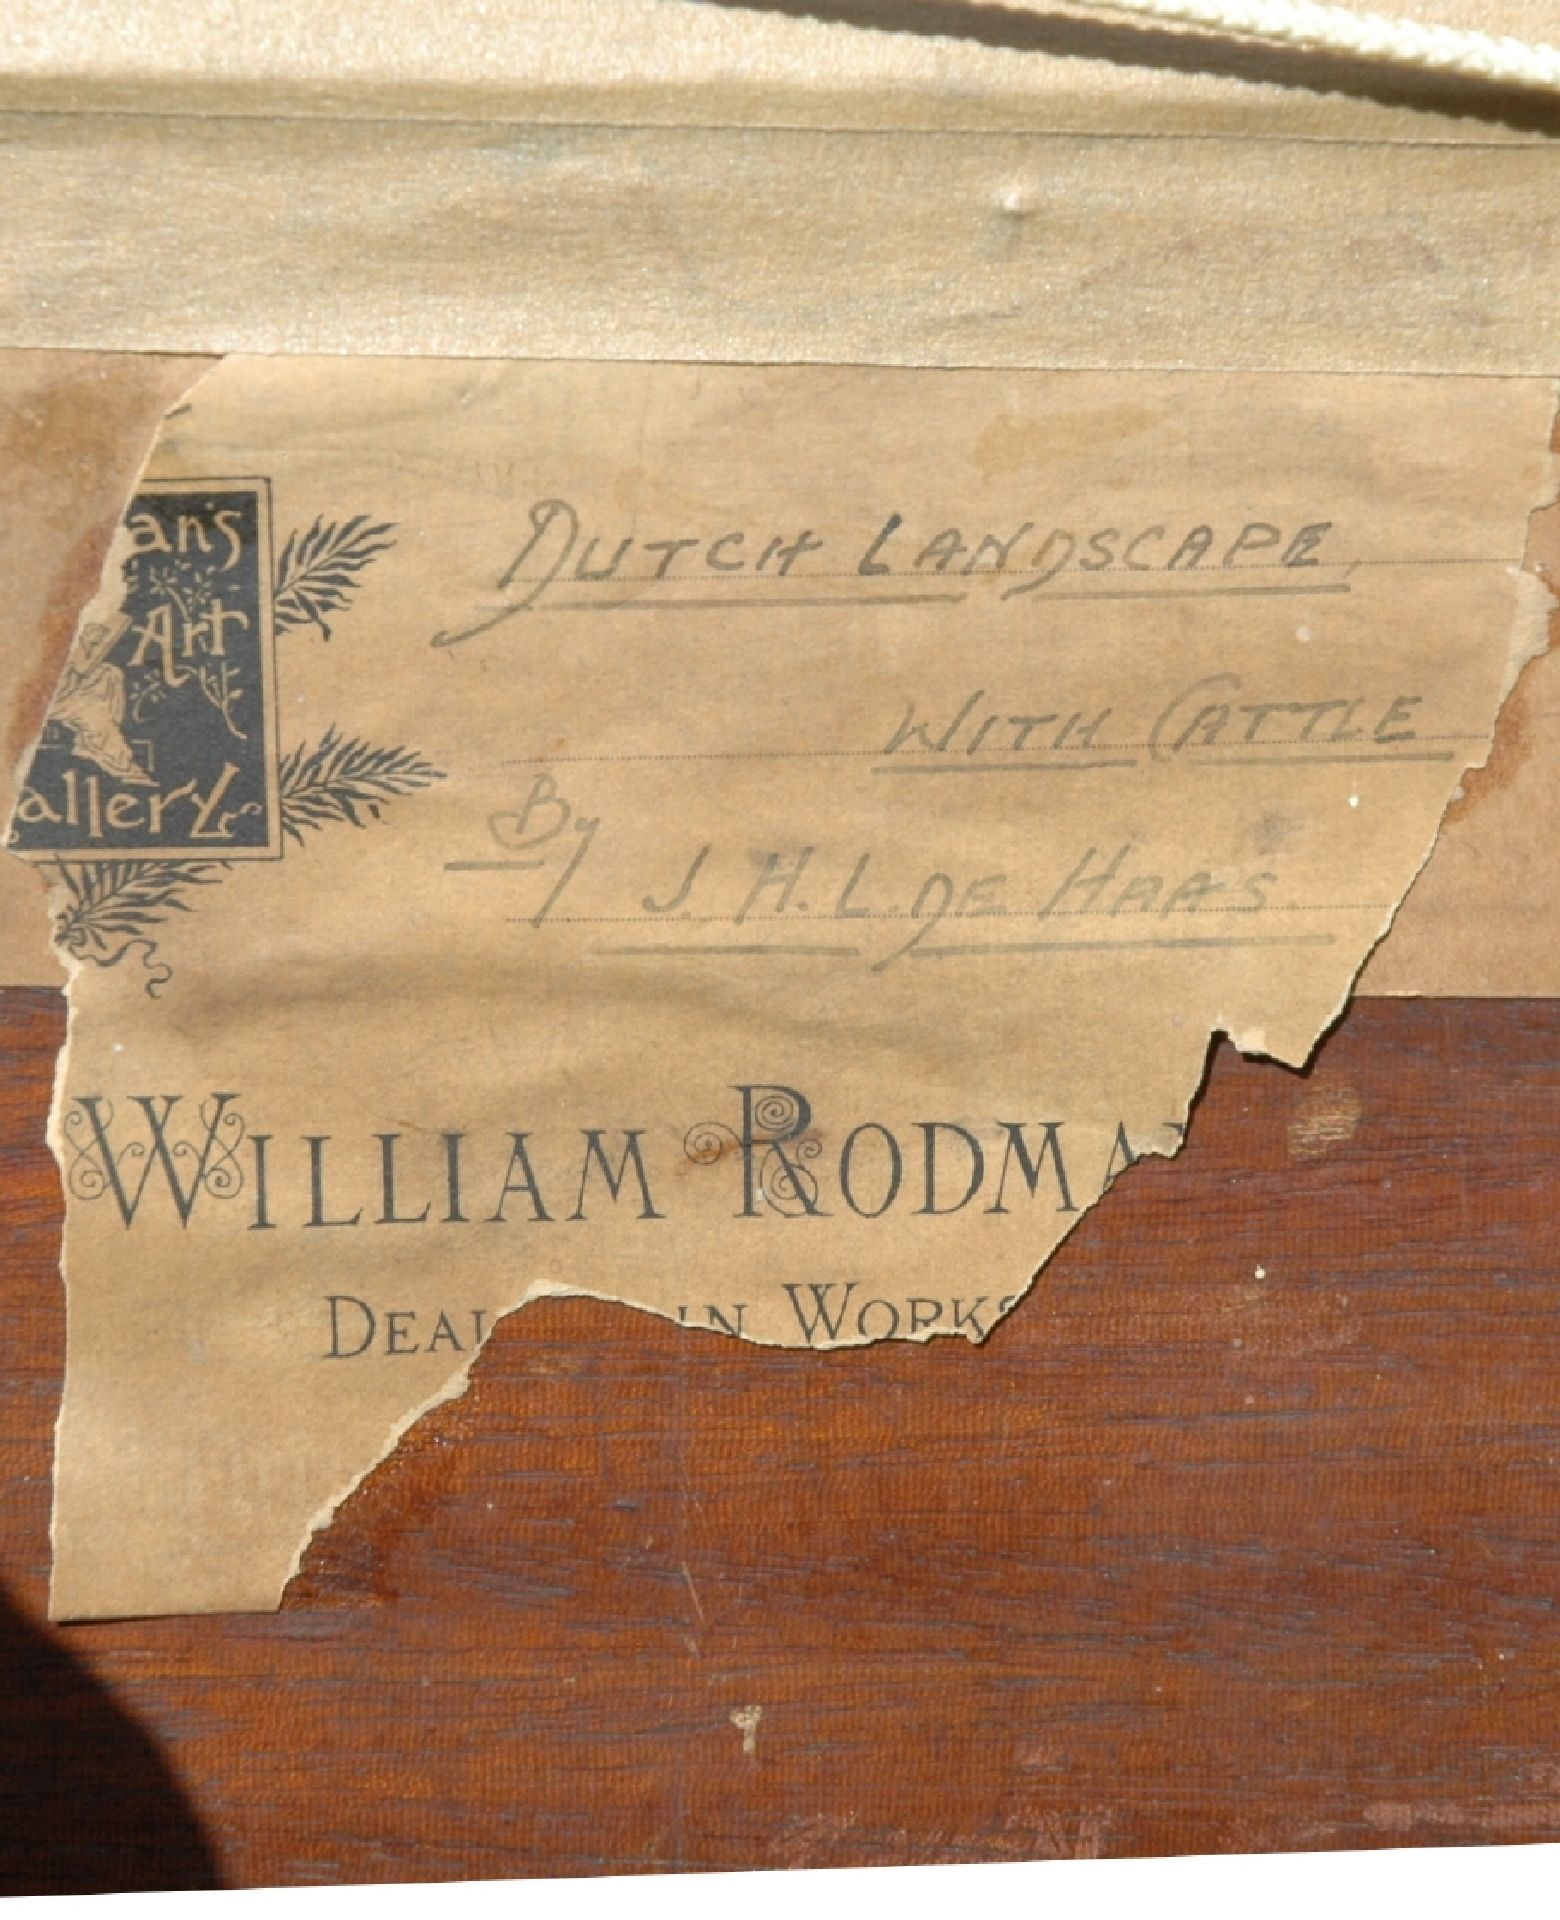 an's
Art
allery
DUTCH LANDSCAPE,
WITH CATTLE
By
J. H. L. DE HAAS.
WILLIAM RODMA
DEAL IN WORKS